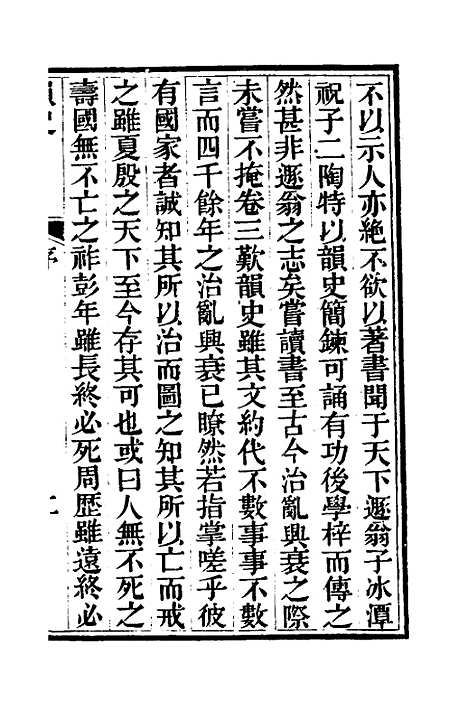 不以示人亦絶不欲以著書聞于天下遯翁子冰潭
祝子二陶特以韻史簡鍊可誦有功後學梓而傳之
然甚非遯翁之志矣嘗讀書至古今治亂興衰之際
未嘗不掩卷三歎韻史雖其文約代不數事事不數
言而四千餘年之治亂興衰已瞭然若指掌嗟乎彼
有國家者誠知其所以治而圖之知其所以亡而戒
之雖夏殷之天下至今存其可也或曰人無不死之
壽國無不亡之祚彭年雖長終必死周歷雖遠終必
序